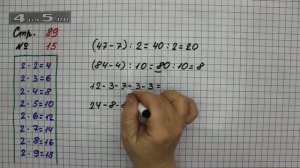 Стр. 89
№ 15
2·2=4
2·3=6
2·4=8
2·5=10
2·6=12
2·7=14
2·8=16
2·9=18
(47-7):2=40:2=20
(84-4):10=80:10=8
12-3-3-3-3=
24-8-8